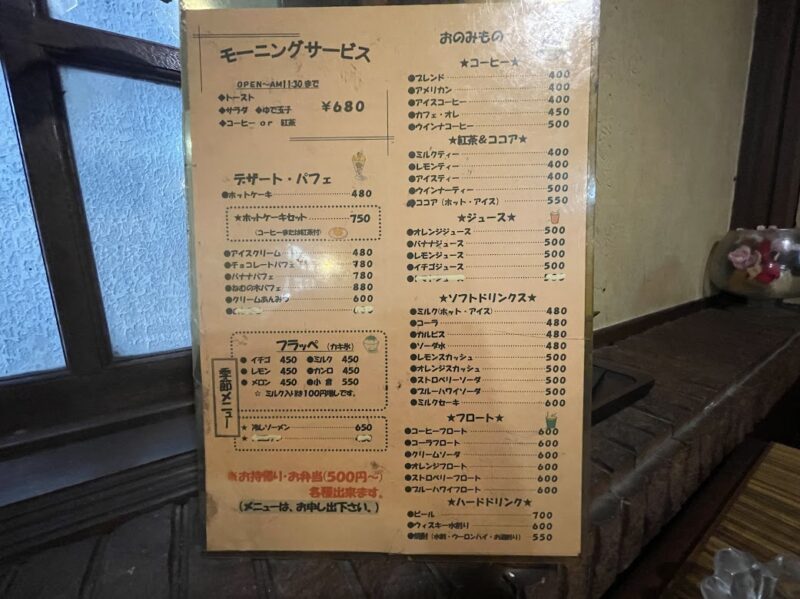 モーニングサービス
OPEN～AM11:30まで
◆トースト
◆サラダ ◆ゆで玉子
◆コーヒー or 紅茶
¥680
デザート・パフェ
●ホットケーキ 480
★ホットケーキセット 750
(コーヒーまたは紅茶付)
●アイスクリーム 480
●チョコレートパフェ 780
●バナナパフェ 780
●ねむの木パフェ 880
●クリームあんみつ 600
季節メニュー
フラッペ (カキ氷)
●イチゴ 450 ●ミルク 450
●レモン 450 ●カンロ 450
●メロン 450 ●小倉 550
☆ ミルク入りは100円増しです。
★ 冷しソーメン 650
★
※お持帰り・お弁当(500円～)
各種出来ます。
(メニューは、お申し出下さい。)
おのみもの
★コーヒー★
●ブレンド 400
●アメリカン 400
●アイスコーヒー 400
●カフェ・オレ 450
●ウインナコーヒー 500
★紅茶&ココア★
●ミルクティー 400
●レモンティー 400
●アイスティー 400
●ウインナーティー 500
●ココア (ホット・アイス) 550
★ジュース★
●オレンジジュース 500
●バナナジュース 500
●レモンジュース 500
●イチゴジュース 500
★ソフトドリンクス★
●ミルク(ホット・アイス) 480
●コーラ 480
●カルピス 480
●ソーダ水 480
●レモンスカッシュ 500
●オレンジスカッシュ 500
●ストロベリーソーダ 500
●ブルーハワイソーダ 500
●ミルクセーキ 600
★フロート★
●コーヒーフロート 600
●コーラフロート 600
●クリームソーダ 600
●オレンジフロート 600
●ストロベリーフロート 600
●ブルーハワイフロート 600
★ハードドリンク★
●ビール 700
●ウィスキー水割り 600
●焼酎 (水割・ウーロンハイ・お湯割り) 550